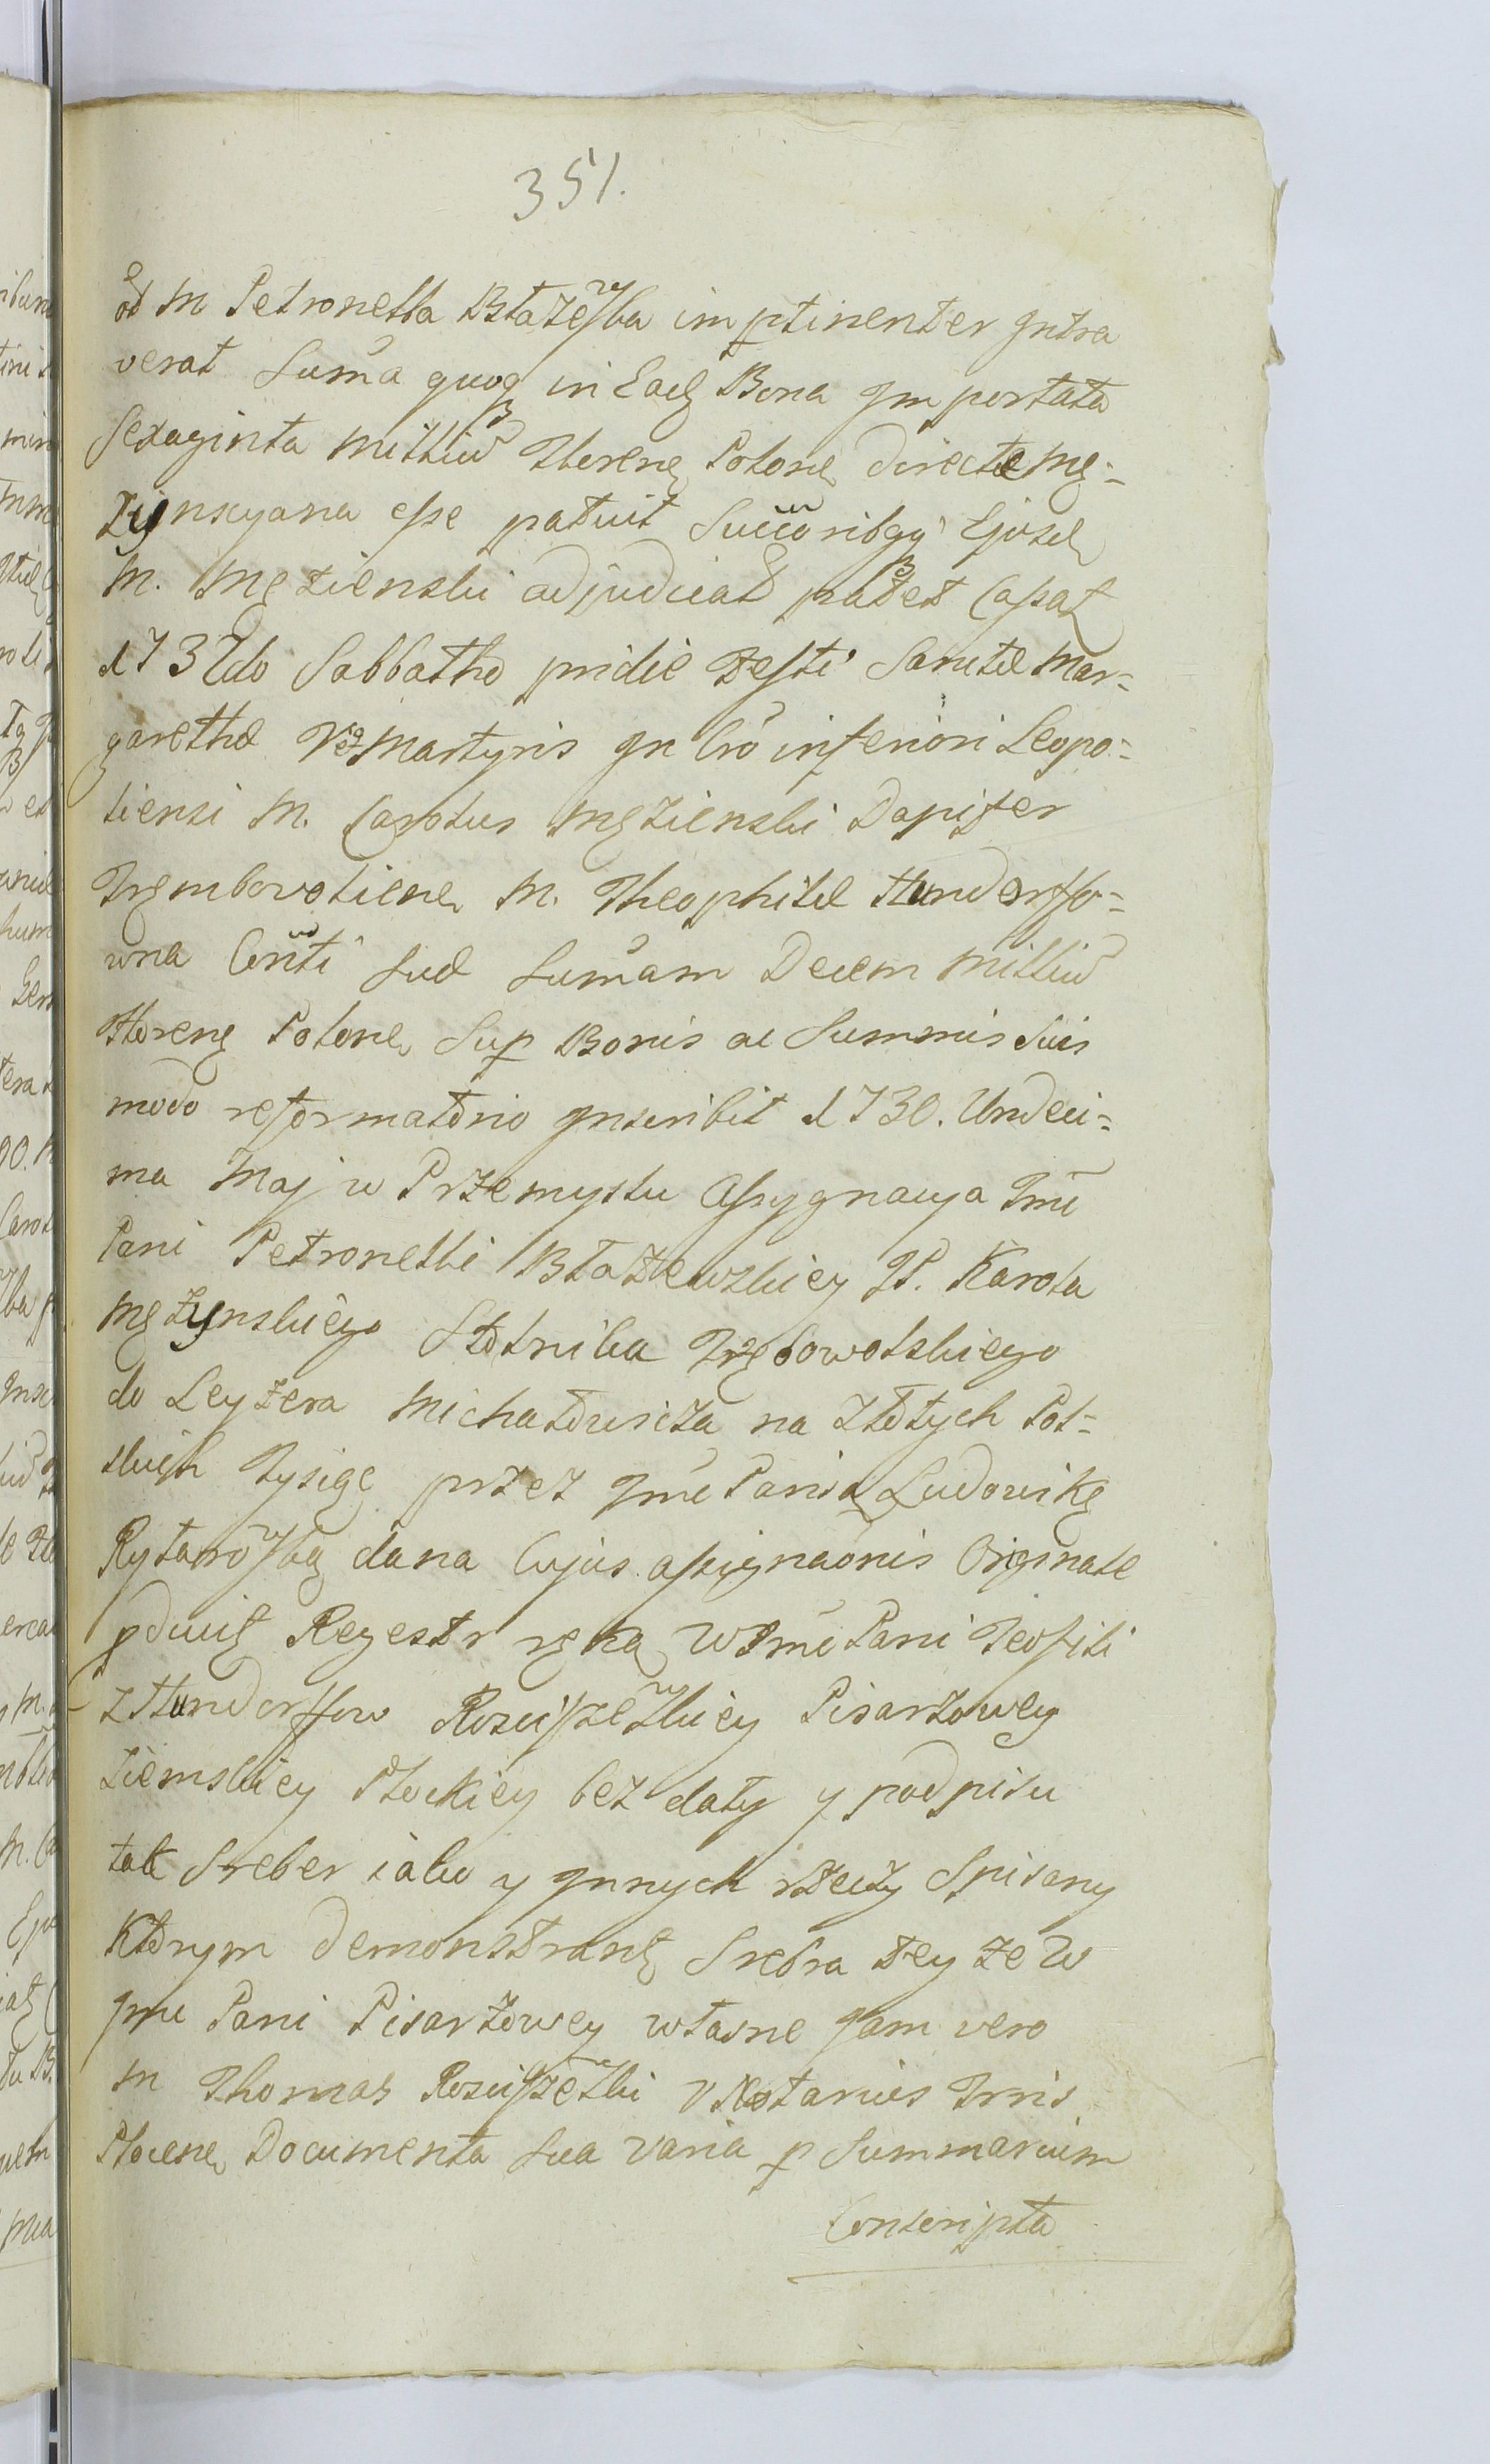 351.
od M Petronella Błażewska impertinenter intra
verat Suma quoq in Eadę Bona importata
sexaginta milliu florenę Polonę directe Mę=
żynscyana esse patuit Succoribqȝ Ejusdę
M. Mężienski adjudicat patet Casatę
1732do Sabbatho pridie Festi Sanctæ Mar=
garethæ Vgs Martyris in Cro inferiori Leopo=
liensi M. Carolus Mężienski Dapifer
Trembovolienę M. Theophilæ Hunderffo=
wna Conti suæ Sumam Decem milliu
floreng Polonę Sup Bonis ac Summis Suis
modo reformatorio inscribit 1730. Undeci=
ma Maj w Przemyslu Assygnacya Jme
Pani Petronelli Błażewskiey JP. Karola
Mężynskiego Stolnika Trębowolskiego
do Leyzera Michałowicza na złotych Pol=
skich tysiąc przez Jme Panią Ludowikę
Rytarowską dana Cujus assignaonis Originale
pducitę Regestr ręką W Jme Pani Teofili
z Hunderffow Rosciszewskiey Pisarzowey
ziemskiey Płockiey bez daty y podpisu
tak Sreber iako y innych rzeczy Spisany
Którym demonstrantę Srebra tey że W
Jme Pani Pisarzowey własne Jam vero
M Thomas Rosciszewski Notarius Trris
Plocenę Documenta sua varia p Summarium
Conscripta